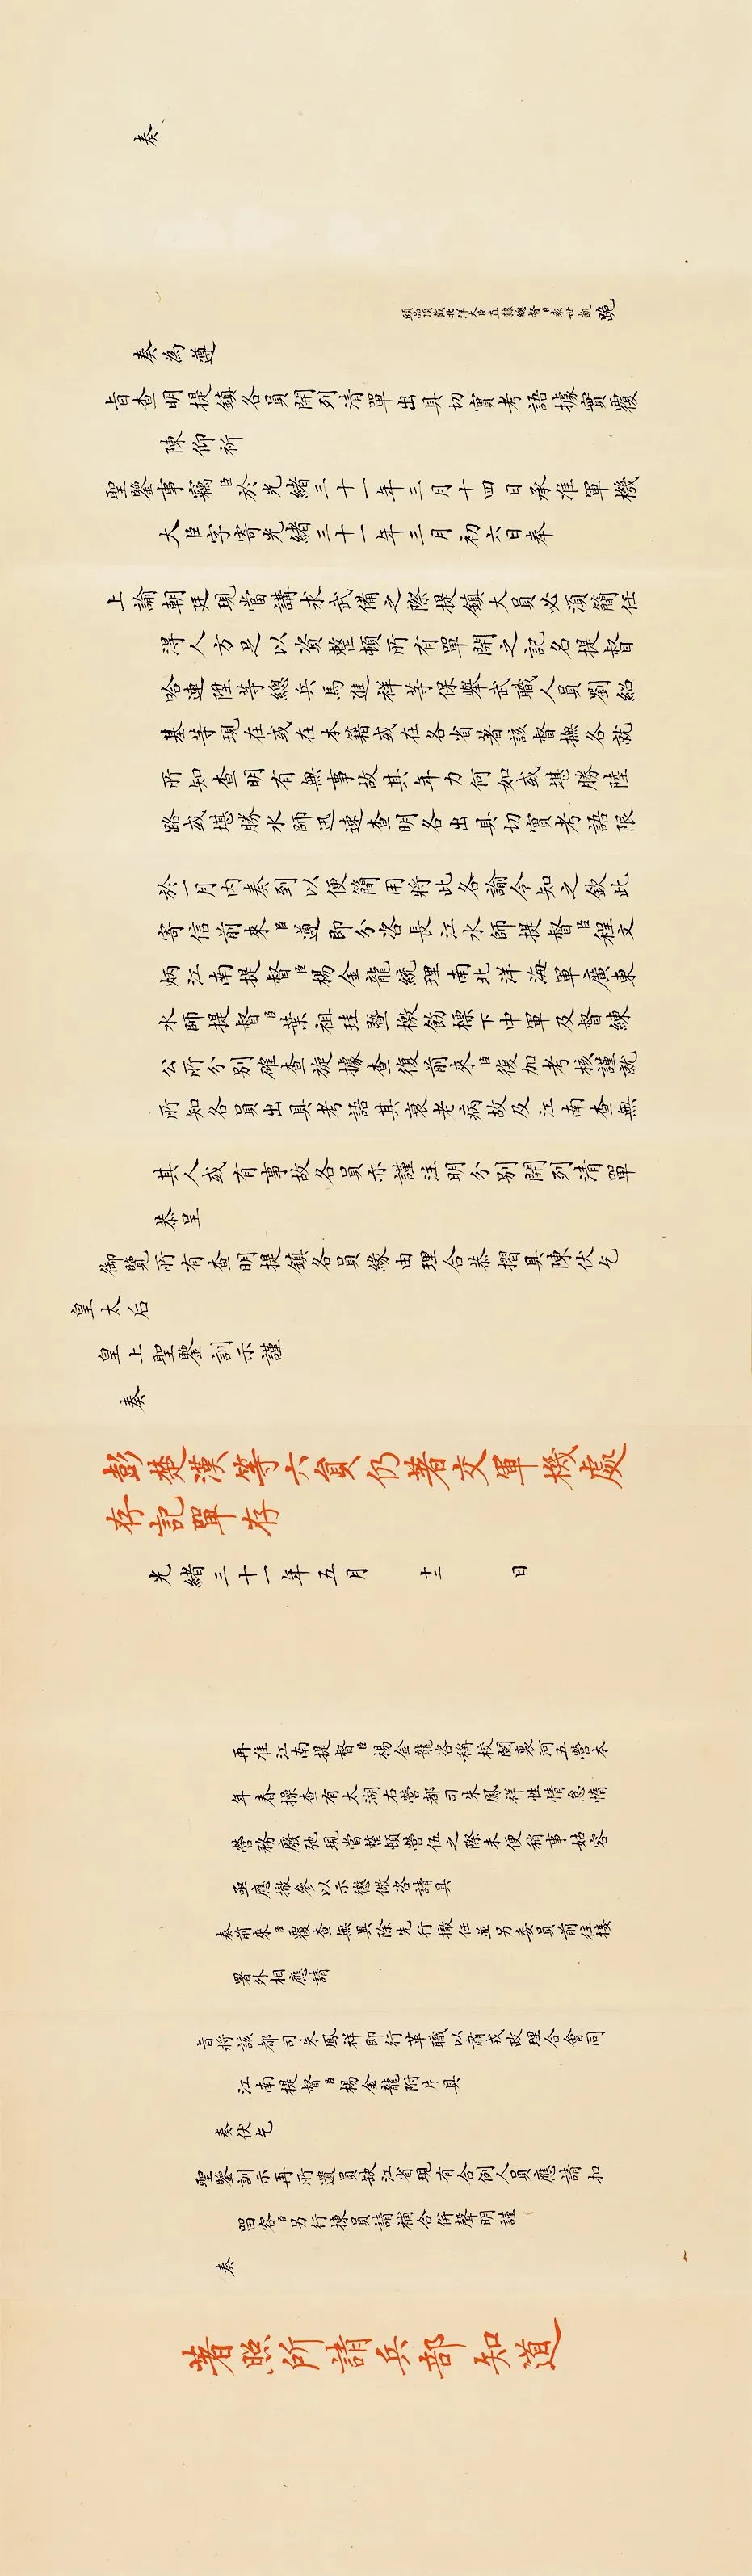 奏
頭品頂戴北洋大臣直隸總督臣袁世凱跪
奏為遵
旨查明提鎮各員開列清單出具切實考語據實覆
陳仰祈
聖鑒事竊臣於光緒三十一年三月十四日承准軍機
大臣字寄光緒三十一年三月初六日奉
上諭朝廷現當講求武備之際提鎮大員必須簡任
得人方足以資整頓所有單開之記名提督
哈連陞等總兵馬進祥等保舉武職人員劉紹
基等現在或在本籍或在各省著該督撫各就
所知查明有無事故其年力何如或堪勝陸
路或堪勝水師迅速查明各出具切實考語限
於一月內奏到以便簡用將此各諭令知之欽此
寄信前來臣遵即分咨長江水師提督臣程文
炳江南提督臣楊金龍統理南北洋海軍廣東
水師提督臣葉祖珪暨檄飭標下中軍及督練
公所分別確查旋據查復前來臣復加考核謹就
所知各員出具考語其衰老病故及江南查無
其人或有事故各員亦謹注明分別開列清單
恭呈
御覽所有查明提鎮各員緣由理合恭摺具陳伏乞
皇太后
皇上聖鑒訓示謹
奏
彭楚漢等六員仍著交軍機處
存記單存
光緒三十一年五月 十二 日
再准江南提督臣楊金龍咨稱校閱裏河五營本
年春操查有太湖右營都司朱鳳祥性情怠惰
營務廢弛現當整頓營伍之際未便稍事姑容
亟應撤參以示懲儆咨請具
奏前來臣覆查無異除先行撤任並另委員前往接
署外相應請
旨將該都司朱鳳祥即行革職以肅戎政理合會同
江南提督臣楊金龍附片具
奏伏乞
聖鑒訓示再所遺員缺江省現有合例人員應請扣
留容臣另行揀員請補合併聲明謹
奏
著照所請兵部知道